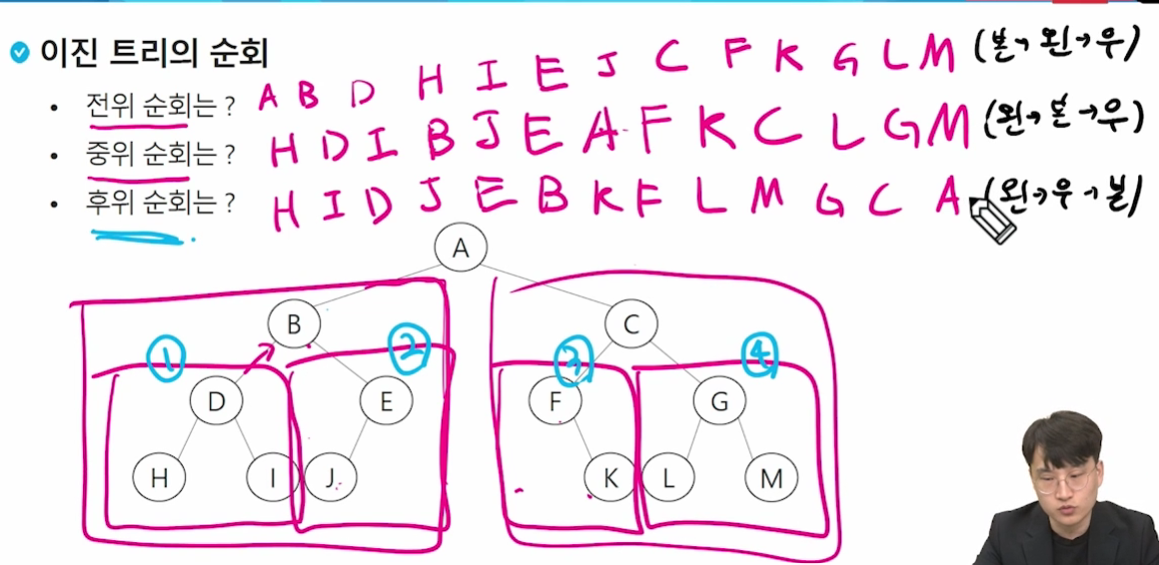 이진 트리의 순회
• 전위 순회는 ? A B D H I E J C F K G L M (본→왼→우)
• 중위 순회는 ? H D I B J E A F K C L G M (왼→본→우)
• 후위 순회는 ? H I D J E B K F L M G C A (왼→우→본)
A
B C
① ② ③ ④
D E F G
H I J K L M